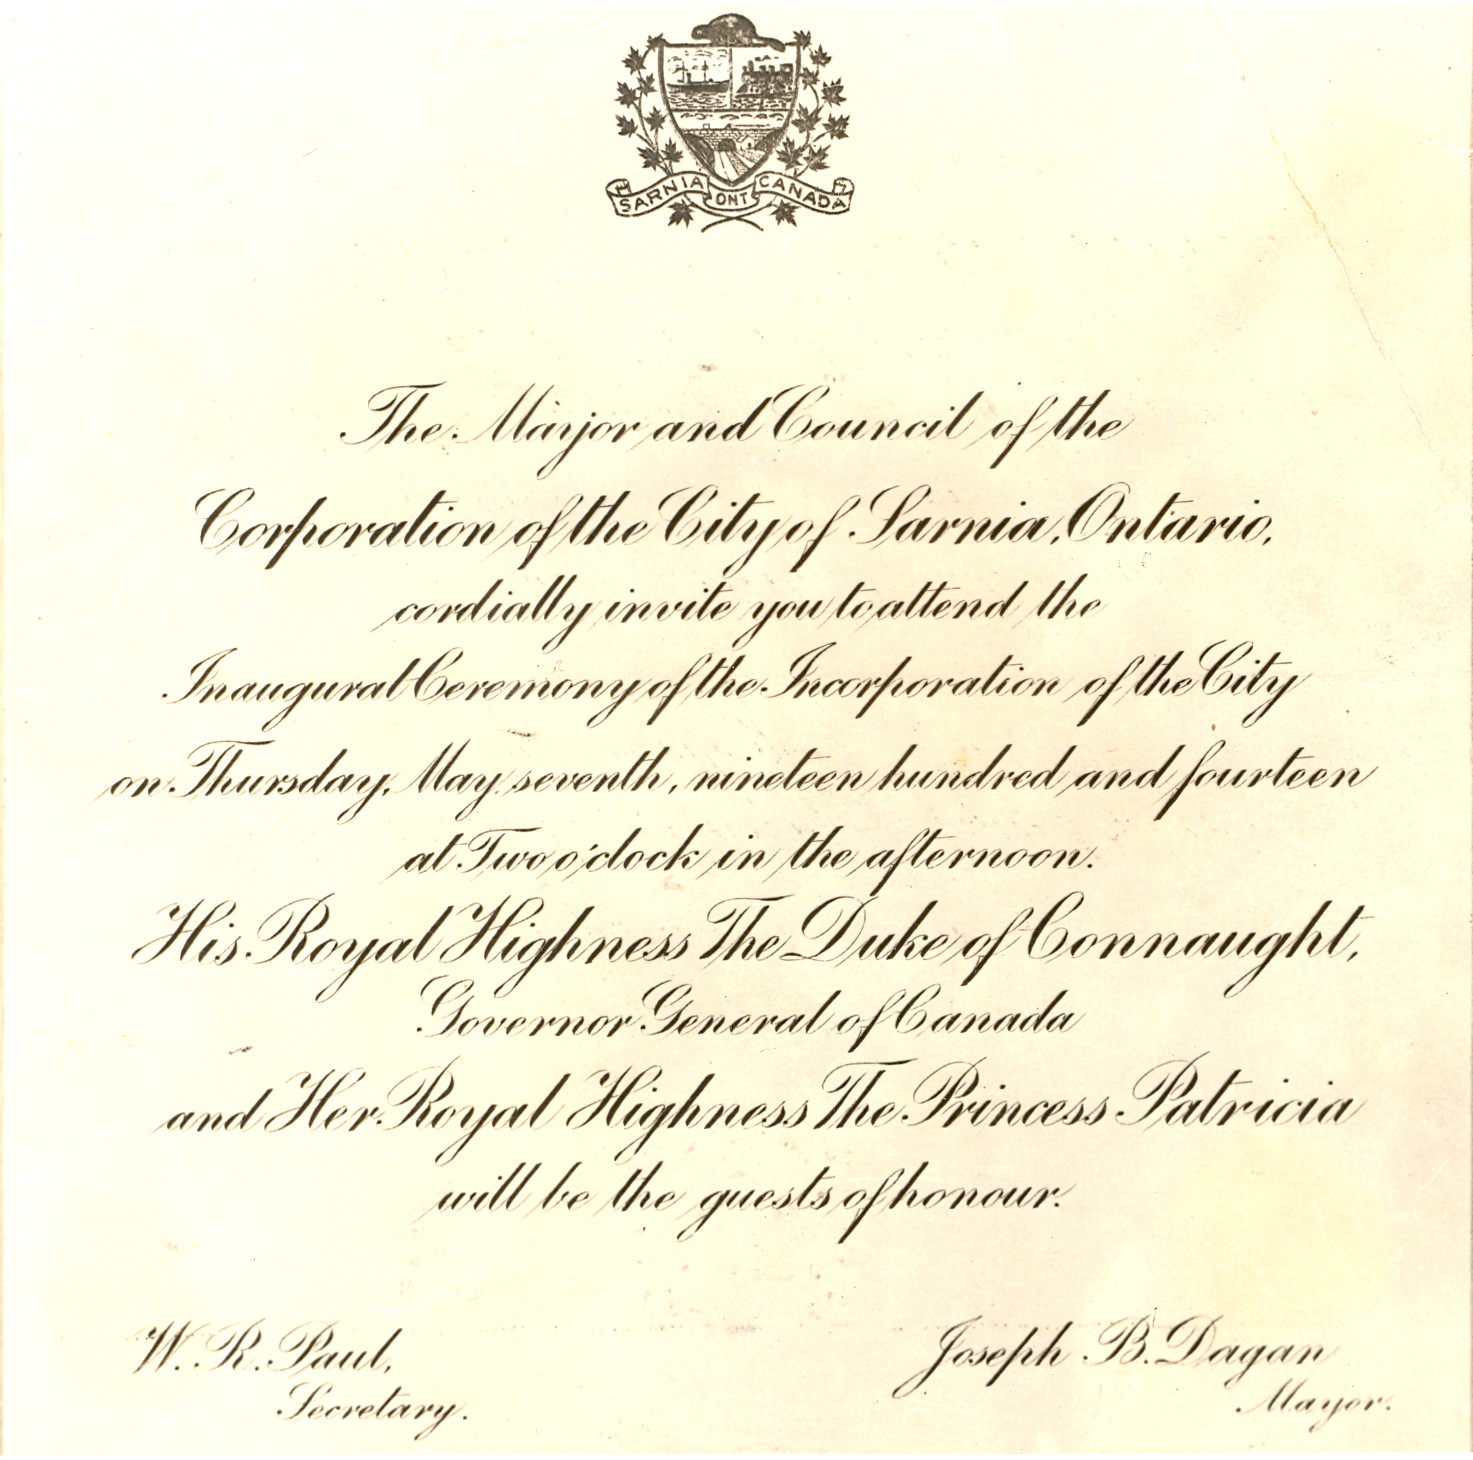 SARNIA ONT CANADA
The Mayor and Council of the
Corporation of the City of Sarnia, Ontario,
cordially invite you to attend the
Inaugural Ceremony of the Incorporation of the City
on Thursday, May seventh, nineteen hundred and fourteen
at Two o'clock in the afternoon.
His Royal Highness The Duke of Connaught,
Governor General of Canada
and Her Royal Highness The Princess Patricia
will be the guests of honour.
W. R. Paul,
Secretary.
Joseph B. Dagan
Mayor.